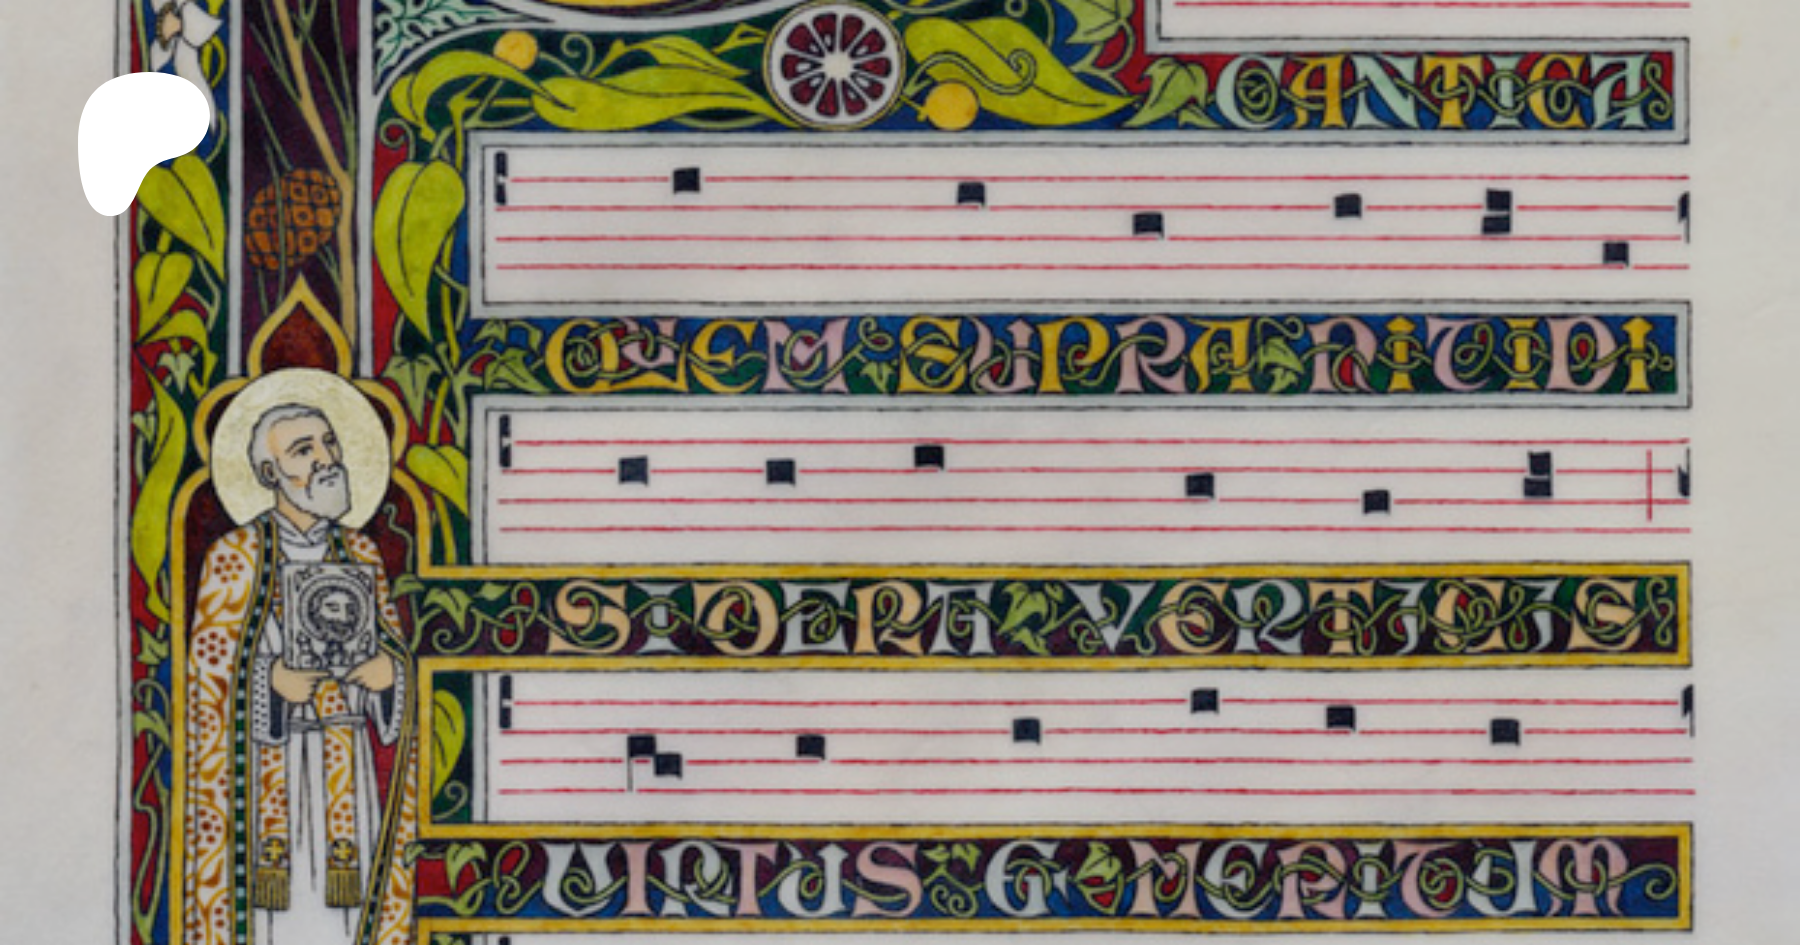 CANTICA
QUEM SUPRA NITIDI
SIDERA VERTICIS
UIRTUS ET MERITUM